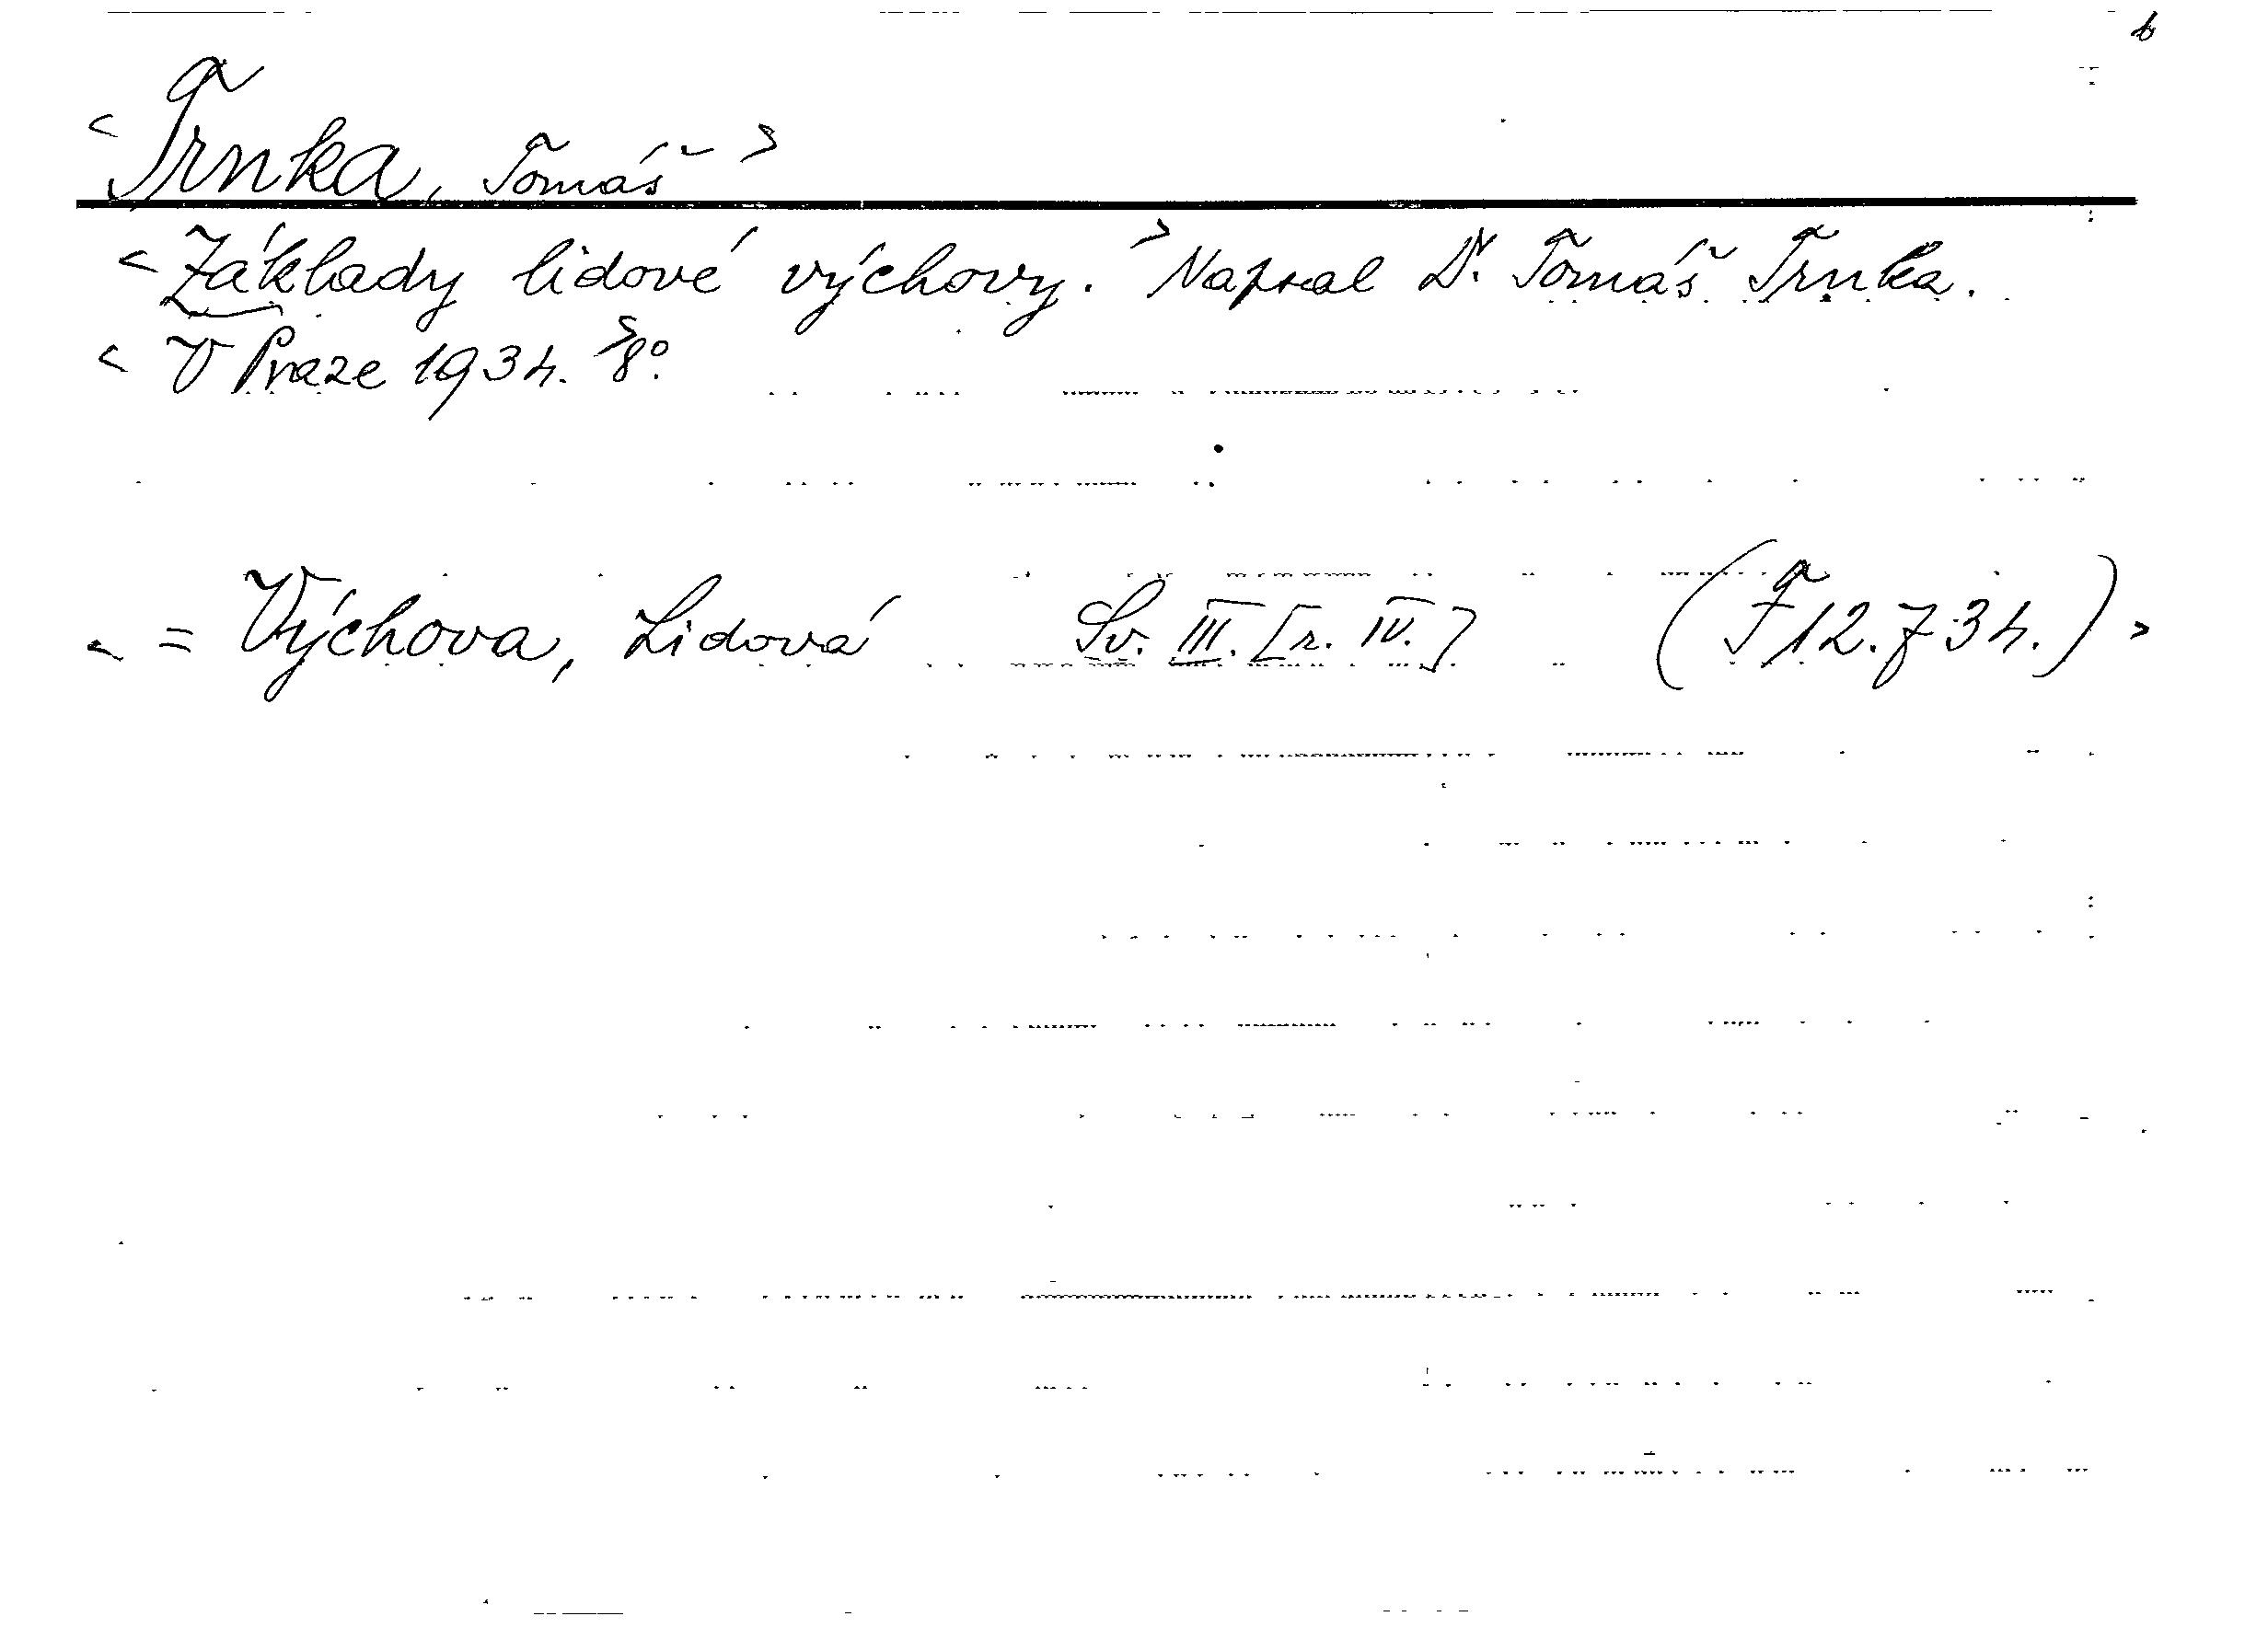 b
< Trnka, Tomáš >
< Základy lidové výchovy. > Napsal Dr. Tomáš Trnka.
< V Praze 1934. > 8°.
< = Výchova, Lidová Sv. III. [r. IV.] (F 12.734.) >